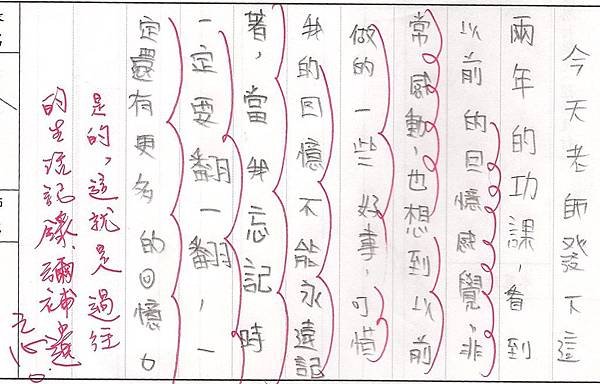 今天老師發下這
兩年的功課，看到
以前的回憶感覺非
常感動，也想到以前
做的一些好事，可惜
我的回憶不能永遠記
著，當我忘記時
一定要翻一翻，一
定還有更多的回憶。
是的，這就是過往
的生活記錄、彌補遺
忘。